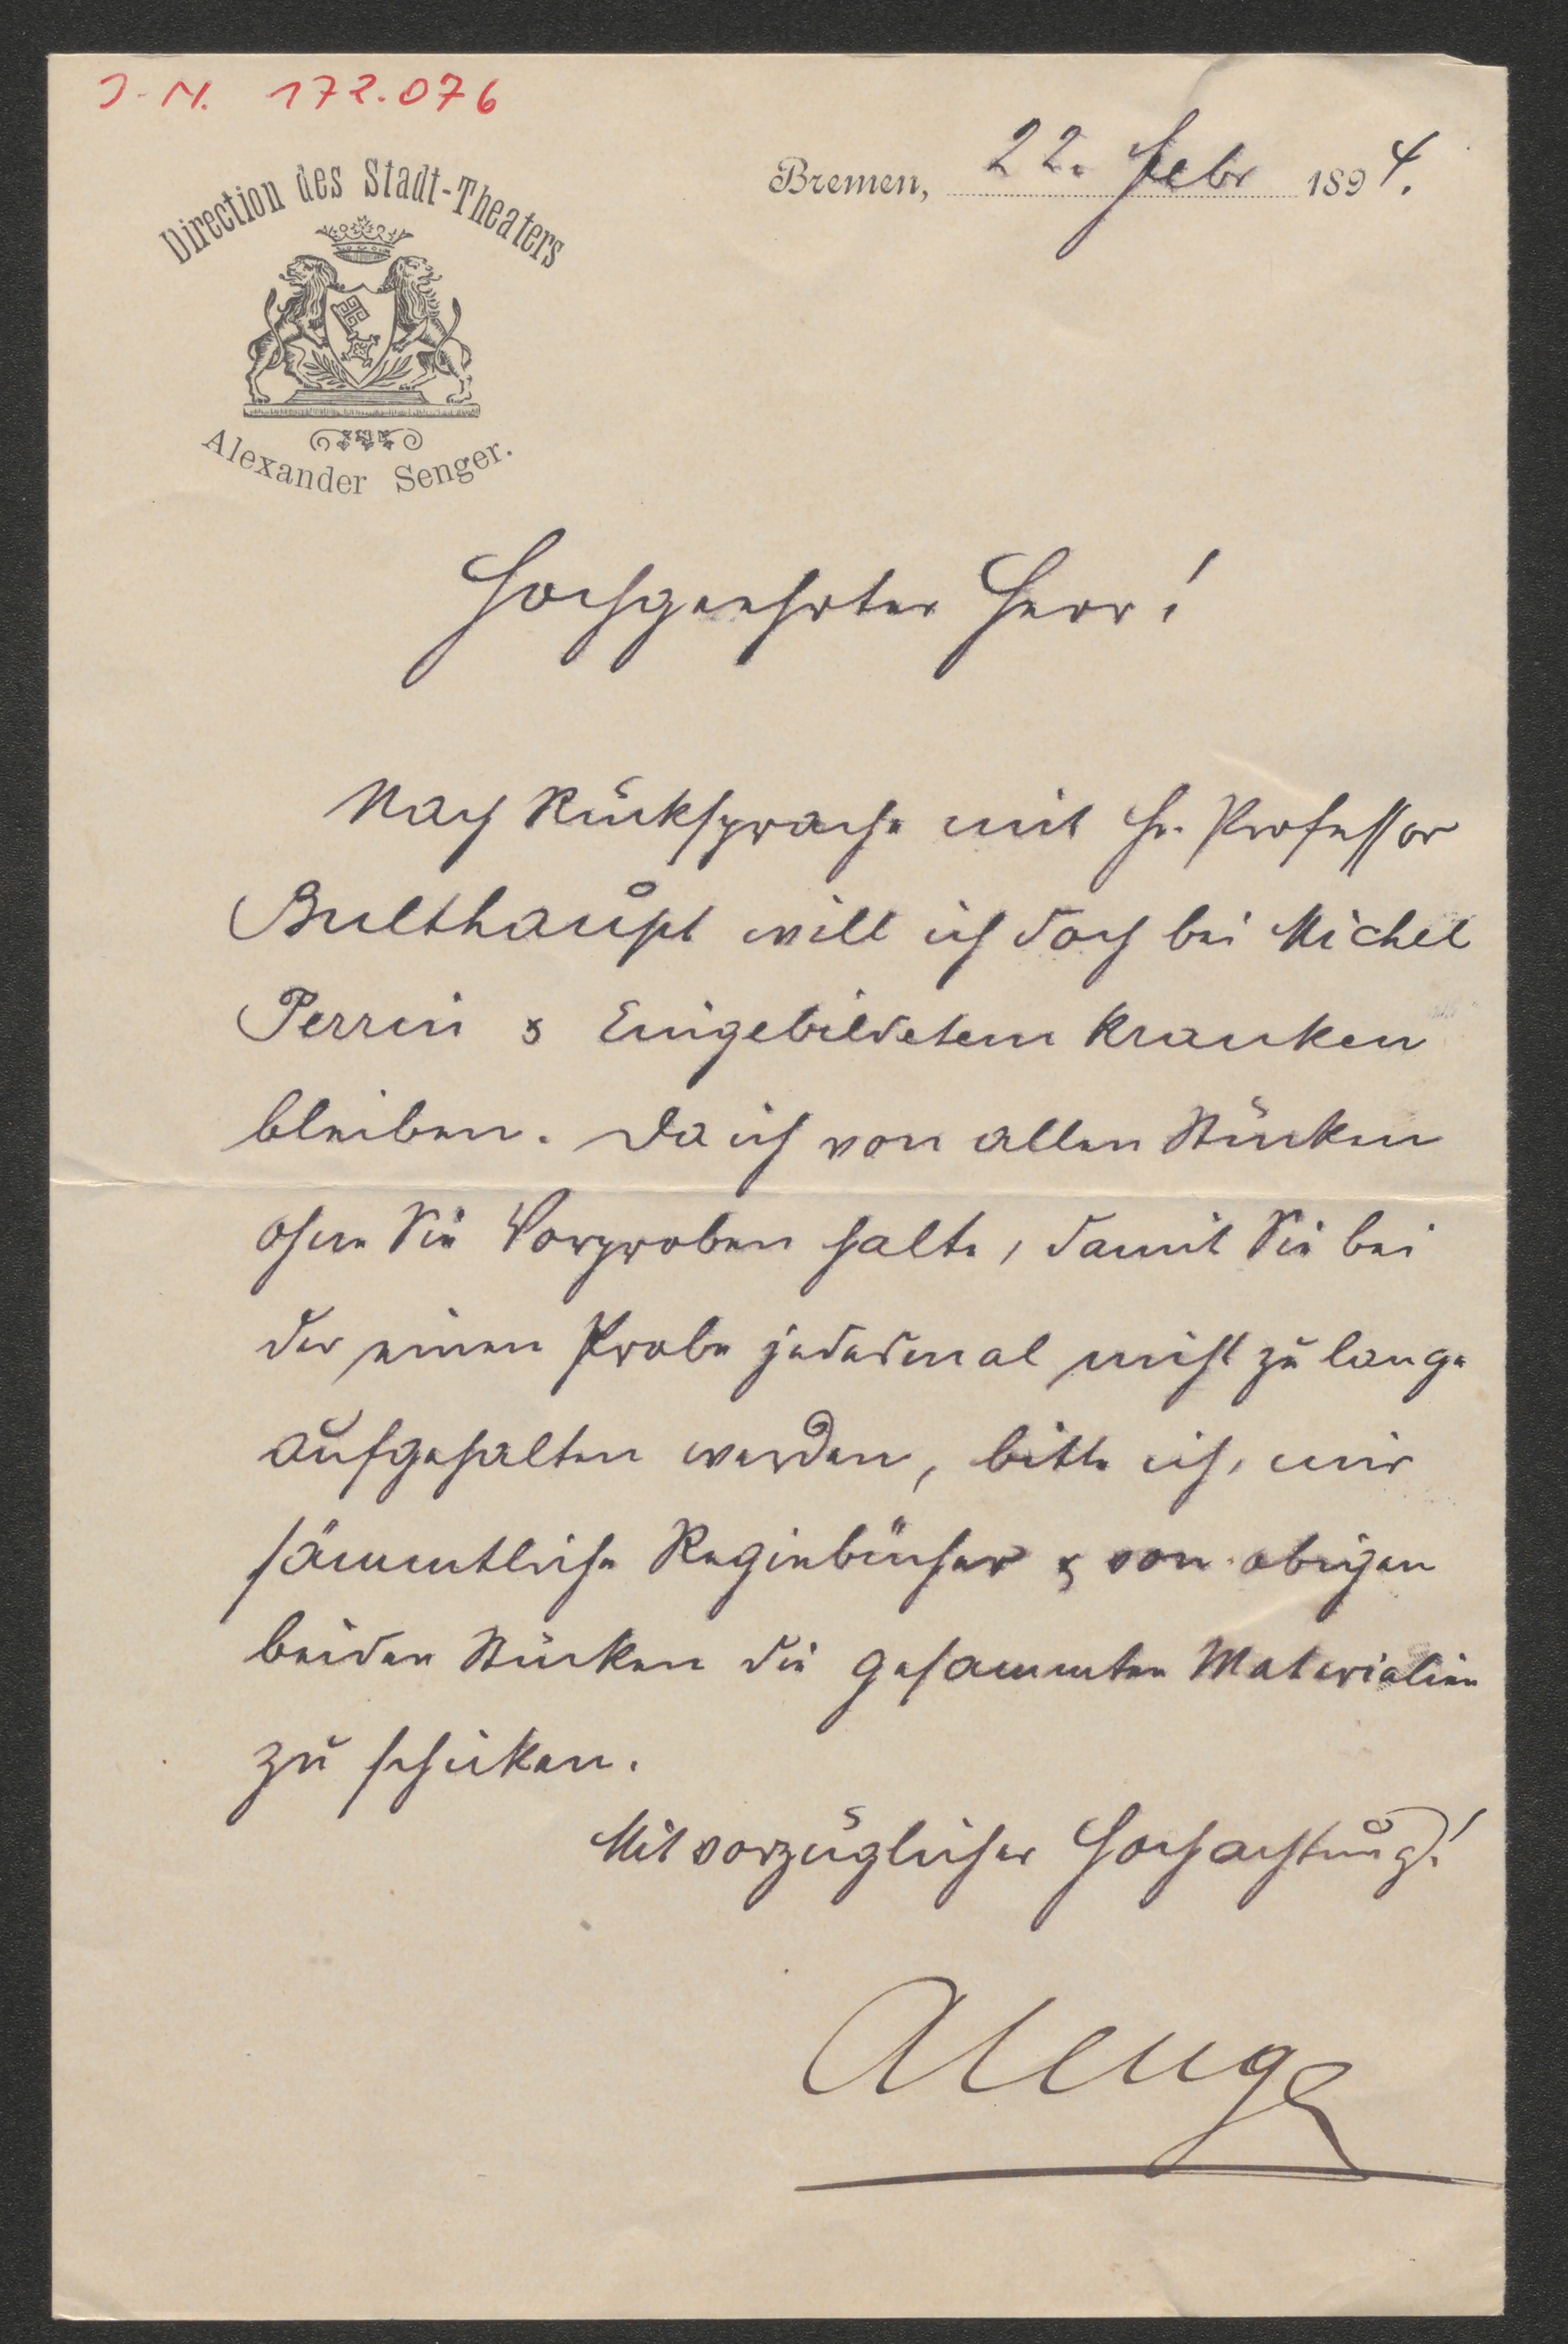 J. N. 172.076
Direction des Stadt-Theaters
Alexander Senger.
Bremen, 22. Febr 1894.
Hochgeehrter Herr!
Nach Rücksprache mit Hr. Professor
Bulthaupt will ich doch bei Michel
Perrin & Eingebildetem Kranken
bleiben. Da ich von allen Stücken
ohne Sie Vorproben halte, damit Sie bei
der einen Probe jedesmal nicht zu lange
aufgehalten werden, bitte ich, mir
sämmtliche Regiebücher & von obigen
beiden Stücken die gesammten Materialien
zu schicken.
Mit vorzüglicher Hochachtung!
ASenger